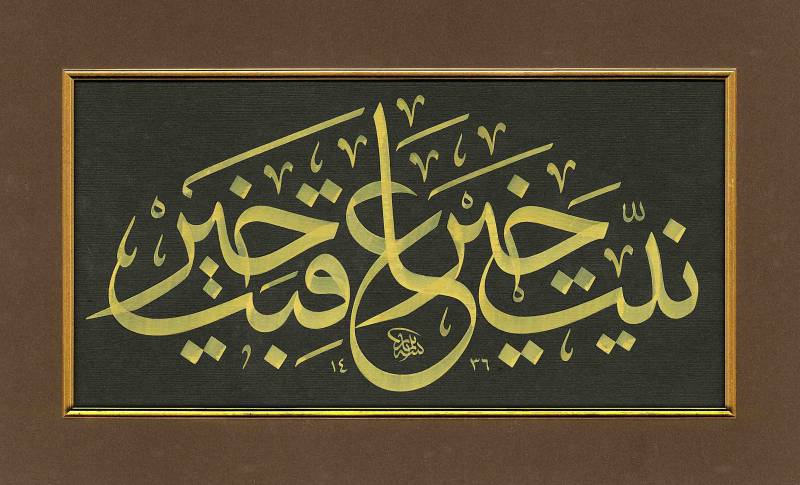 نيّت خير عاقبت خير
١٤٣٦